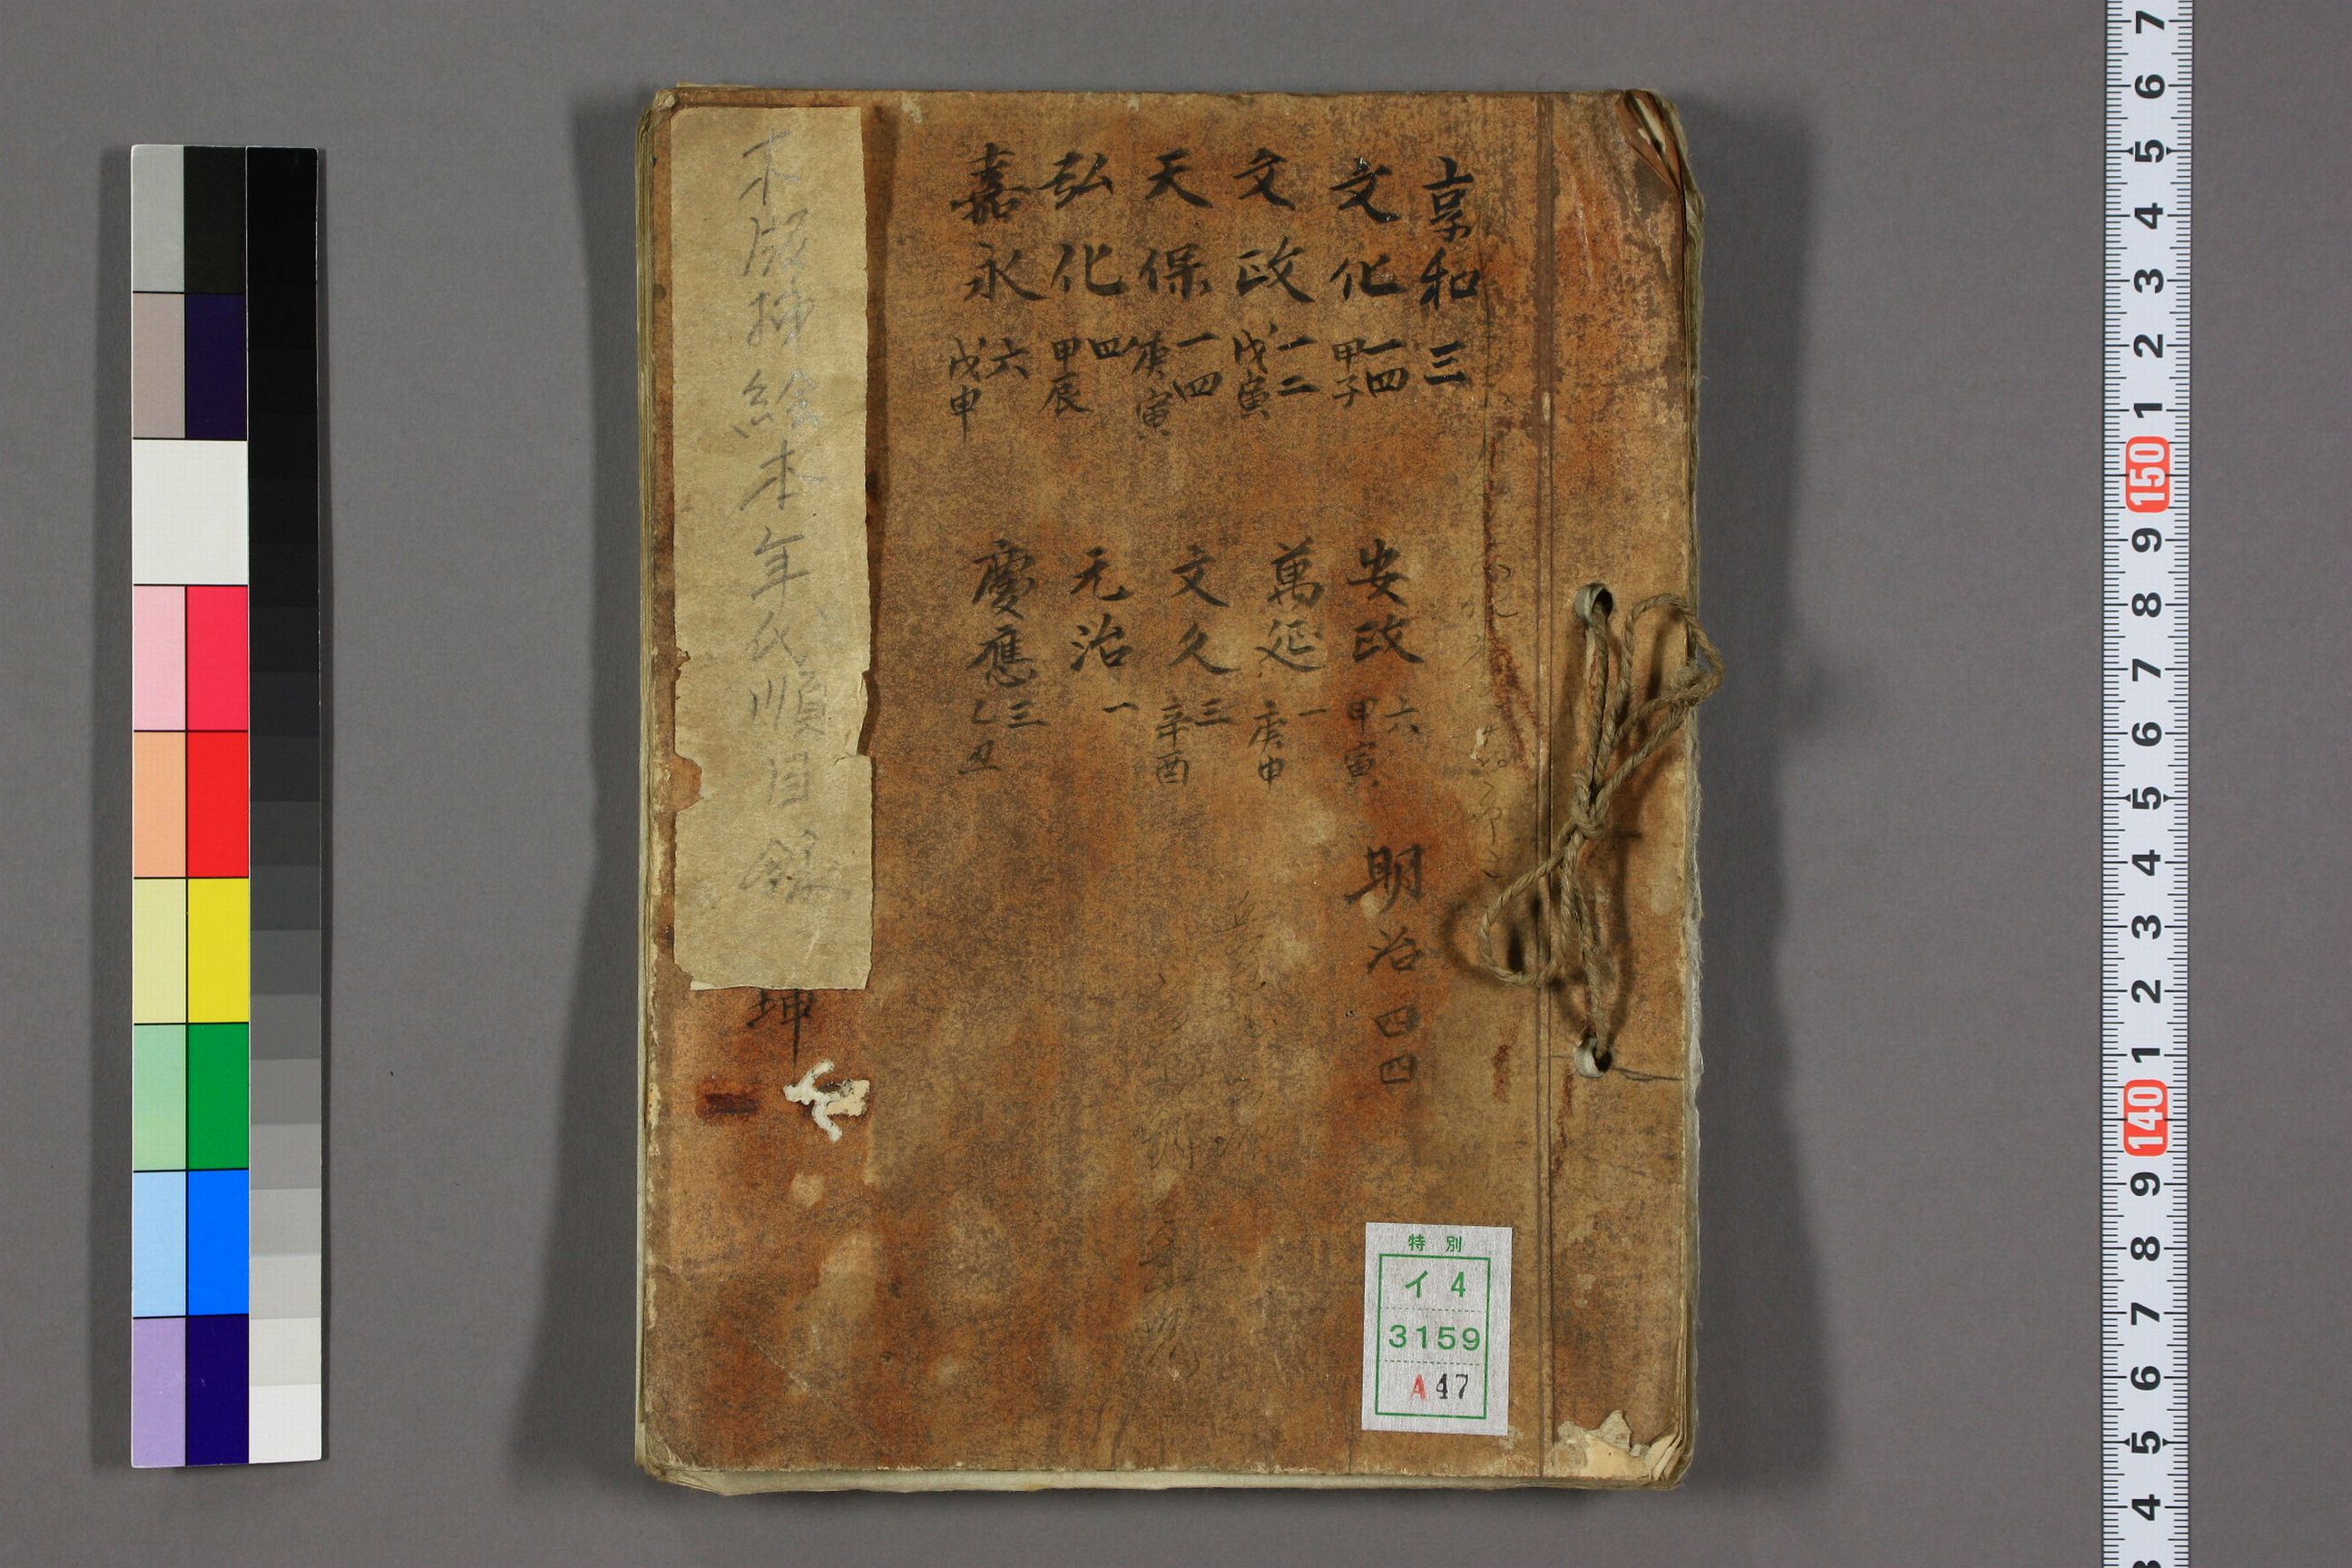 享和 三
文化 一四 甲子
文政 一二 戊寅
天保 一四 庚寅
弘化 四 甲辰
嘉永 六 戊申
安政 六 甲寅
萬延 一 庚申
文久 三 辛酉
元治 一
慶應 三 乙丑
明治 四四
木版挿絵本年代順目録
坤
特別
イ 4
3159
A47
7
6
5
4
3
2
1
150
9
8
7
6
5
4
3
2
1
140
9
8
7
6
5
4